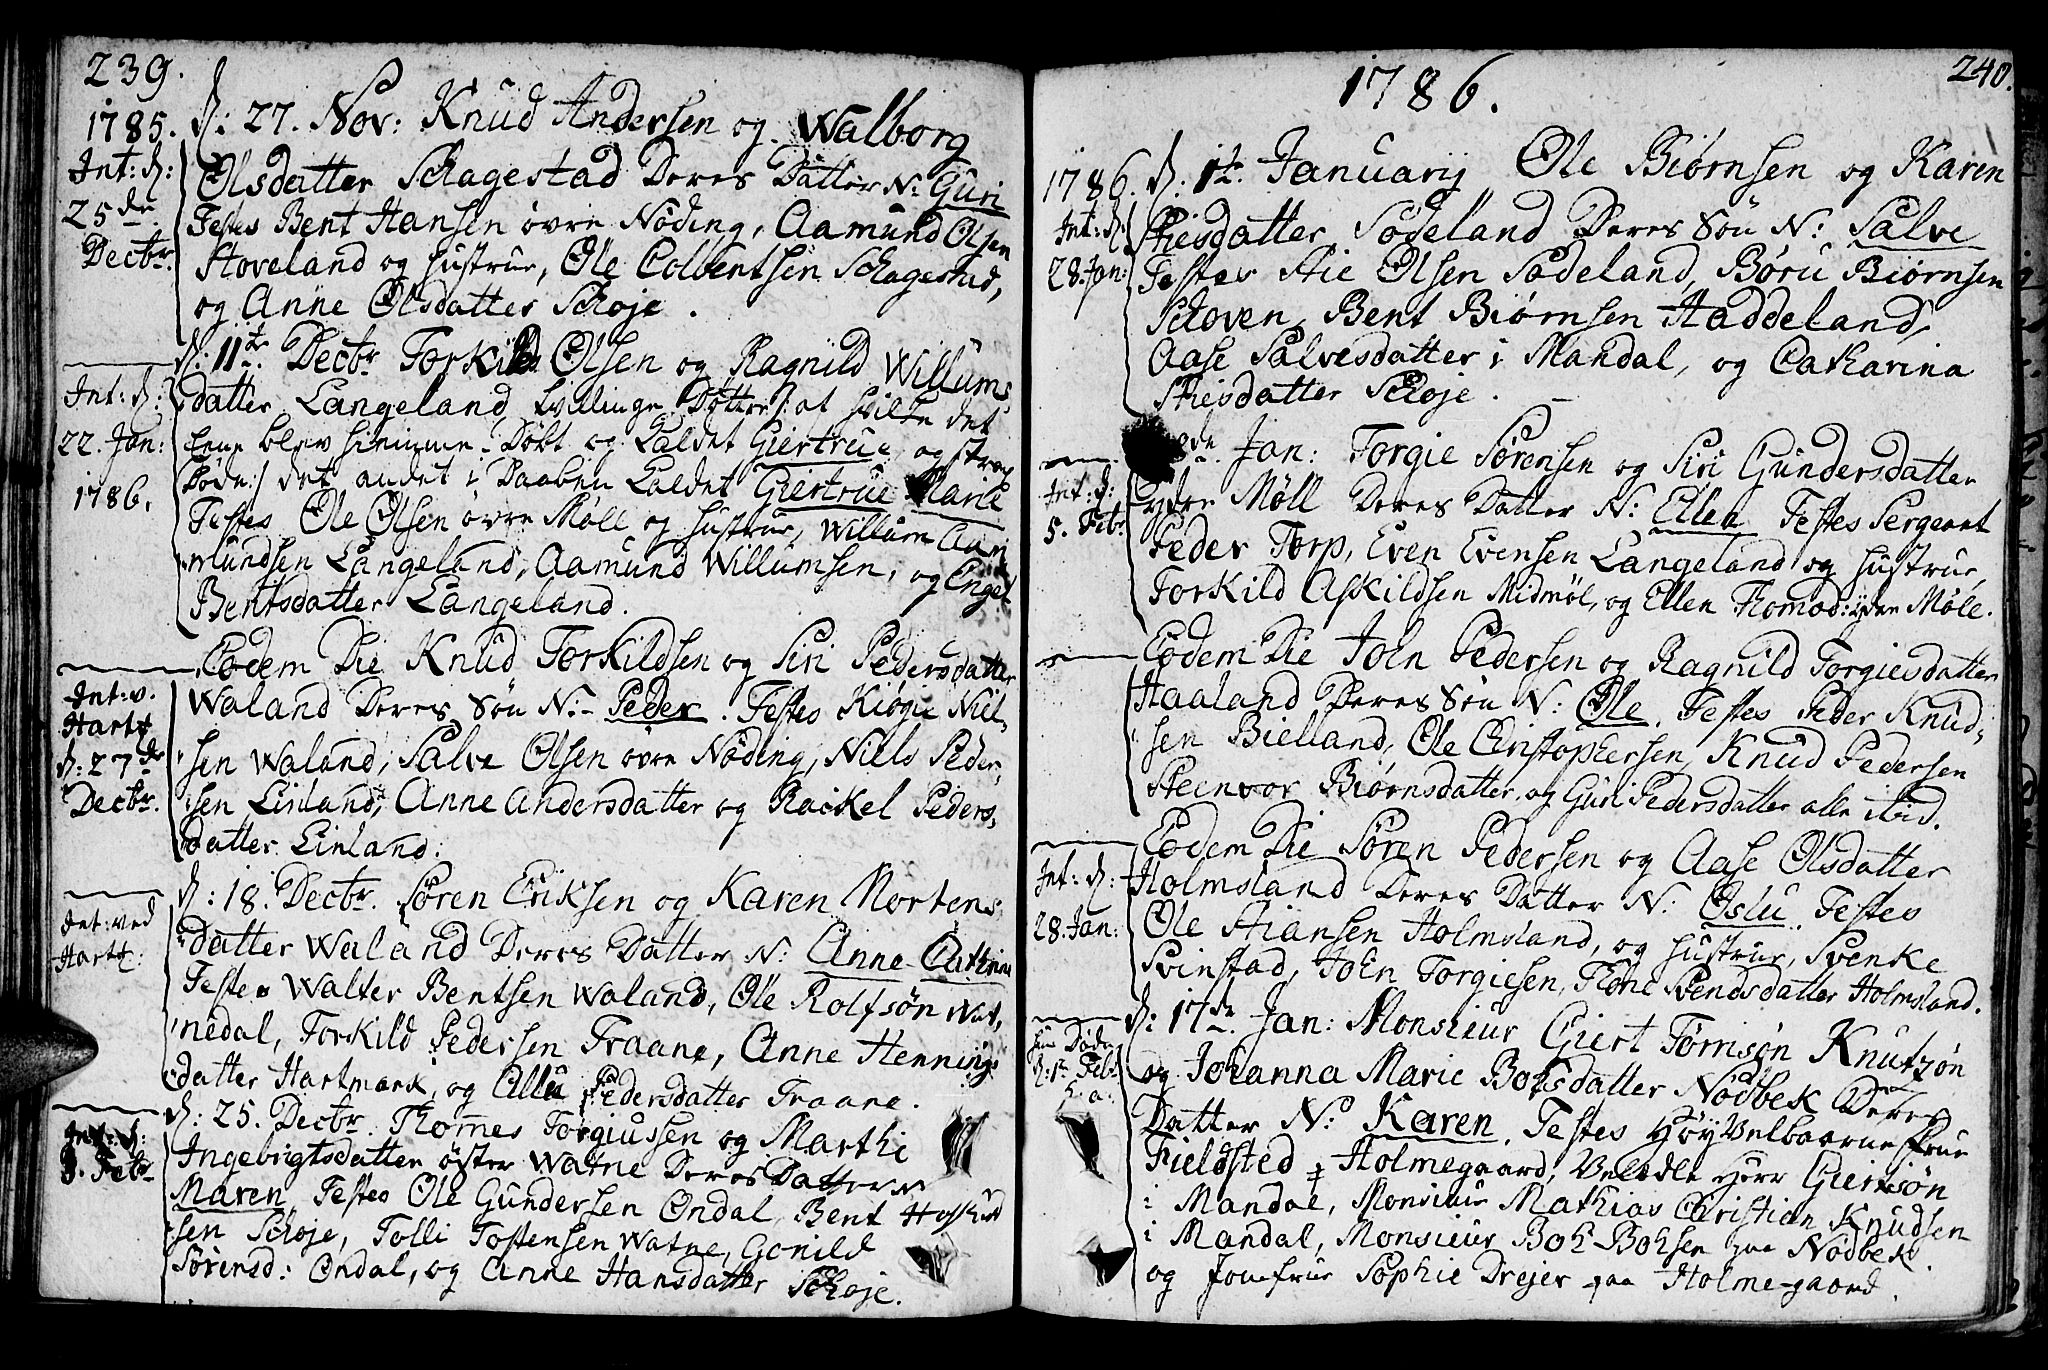 239.
1785.
D: 27. Nov: Knud Andersen og Walborg
Olsdatter Schagestad Deres Datter N: Guri
Testes Bent Hansen övre Nöding, Aamund Olsen
Stoveland og Hustrue, Ole Colbentsen Schagestad,
og Anne Olsdatter Schoje.
Int: D:
25de
Decbr.
D: 11te Decbr Torkild Olsen og Ragnild Willums
datter Langeland tvillinge Døttre /: at hvilke det
eene blev hiemme-Døbt og kaldet Giertrue, og strax
Døde:/ det andet i Daaben kaldet Giertrue Marie
Testes Ole Olsen övre Møll og Hustrue, Willum Aam
mundsen Langeland, Aamund Willumsen, og Engel
Bentsdatter Langeland.
Int: D:
22. Jan:
1786.
Eodem Die Knud Torkildsen og Siri Pedersdatter
Waland Deres Søn N:- Peder. Testes Kiøgu Niel-
sen Waland, Salve Olsen övre Nöding, Niels Peder-
sen Linland, Anne Andersdatter og Rackel Peders-
datter Linland.
Int: v.
Hartk
D: 27de
Decbr.
D: 18. Decbr. Søren Eriksen og Karen Mortens
datter Waland Deres Datter N: Anne Cathrine
Testes Walter Bentsen Waland, Ole Rolfsøn Wat-
nedal, Torkild Pedersen Fraane, Anne Hennings
datter Hartmark, og Elli Pedersdatter Fraane.
Int: ved
Hartk:
D: 25. Decbr. Thomes Torgiussen og Marthe
Ingebrigtsdatter öster Watne Deres Datter N
Maren, Testes Ole Gundersen Øndal, Bent
sen Schoje, Tolli Tostensen Watne, Gonild
Sörensd: Øndal, og Anne Hansdatter Schoje.
Int: D:
5. Febr
240.
1786.
1786.
D: 1te Januarij Ole Biørnsen og Karen
Stiesdatter Sodeland Deres Søn N: Salve
Testes Stie Olsen Sodeland, Børu Biørnsen
Schoven, Bent Biørnsen Haddeland,
Aase Salvesdatter i Mandal, og Catharina
Stiesdatter Schoje.
Int: D:
28. Jan:
de Jan: Torgie Sørensen og Siri Gundersdatter
ydre Møll Deres Datter N: Ellen Testes Sergeant
Peder Torp, Even Evensen Langeland og Hustrue,
Torkild Askildsen Midmøl, og Ellen Thomæd: ydre Møle.
Int: D:
5. Febr
Eodem Die John Pedersen og Ragnild Torgiesdatter
Haaland Deres Søn N: Ole. Testes Peder Knud-
sen Bielland, Ole Christophersen, Knud Pedersen
Steenvor Biørnsdatter, og Guri Pedersdatter alle ibid.
Eodem Die Søren Pedersen og Aase Olsdatter
Holmsland Deres Datter N: Oslu. Testes
Ole Stiansen Holmsland, og Hustrue, Svenke
Svinstad, John Torgiesen, Thone Svendsdatter Holmsland.
Int: D:
28. Jan:
D: 17de Jan: Monsieur Giert Tørrisøn Knutzøn
og Johanna Marie Bohsdatter Nödbek Deres
Datter N: Karen. Testes Høy Velbaarne Frue
Fieldsted Holmegaard, Velædle Herr Giertsøn
i Mandal, Monsieur Mathias Christian Knudsen
i Mandal, Monsieur Boh Bohsen paa Nödbek.
og Jomfrue Sophie Drejer paa Holme-gaard.
Døde
D: 1te Feb: